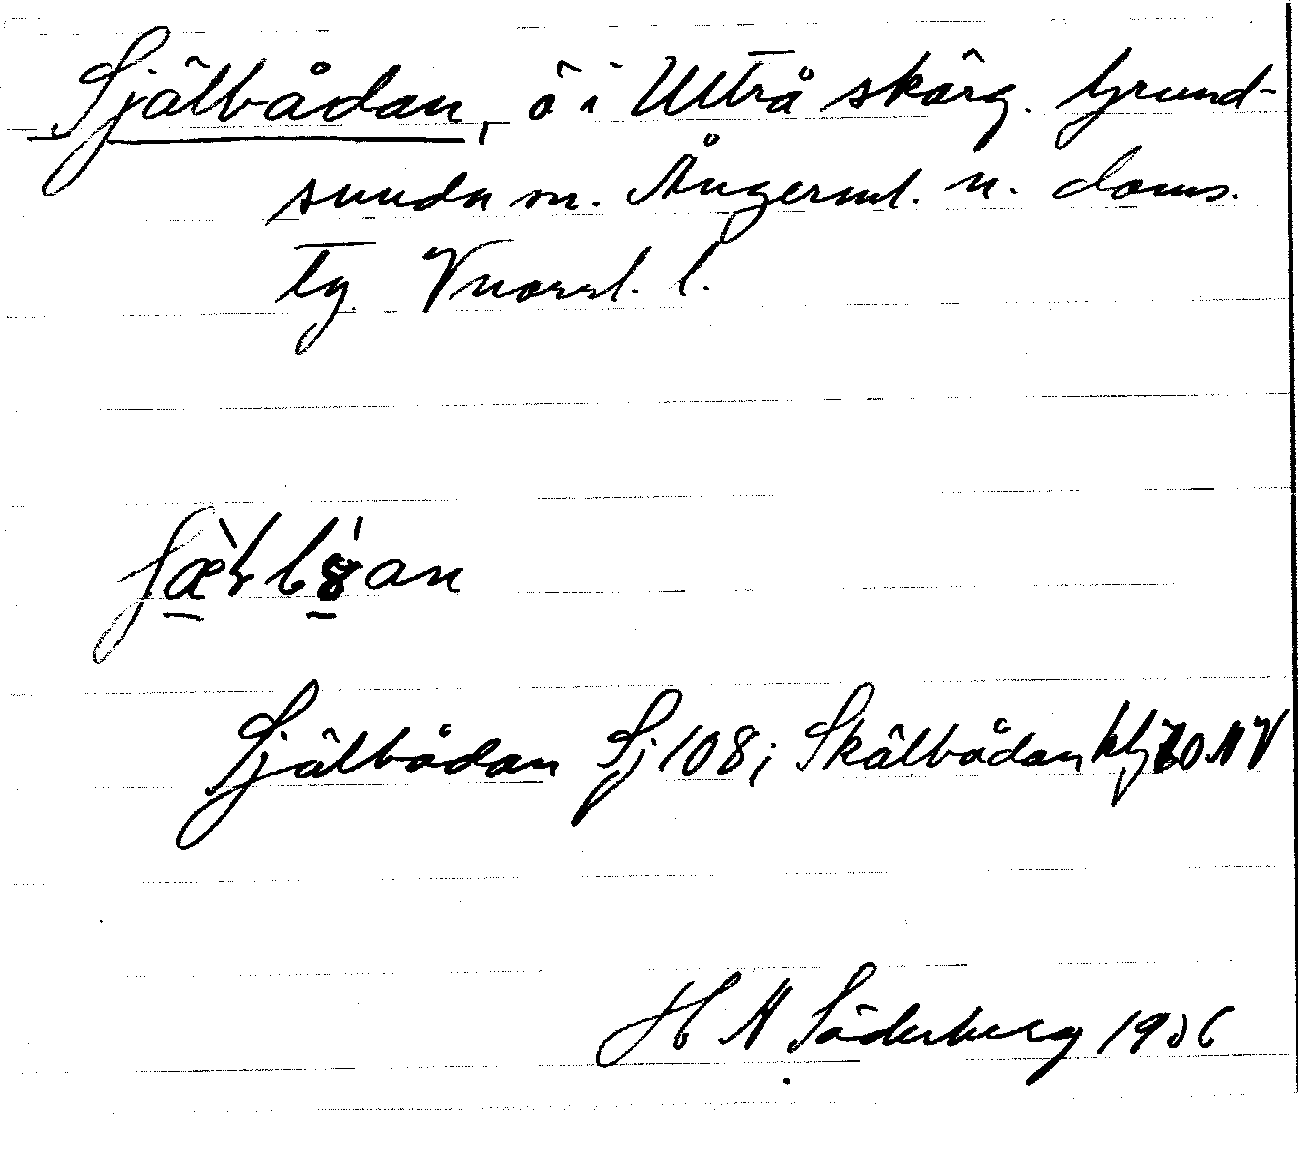 Själbådan, ö i Ulvö skärg. Grund-
sunda sn. Ångerml. n. doms.
tg Vnorrl. l.
Själbådan Sj 108; Skälbådan
H A Söderberg 1936